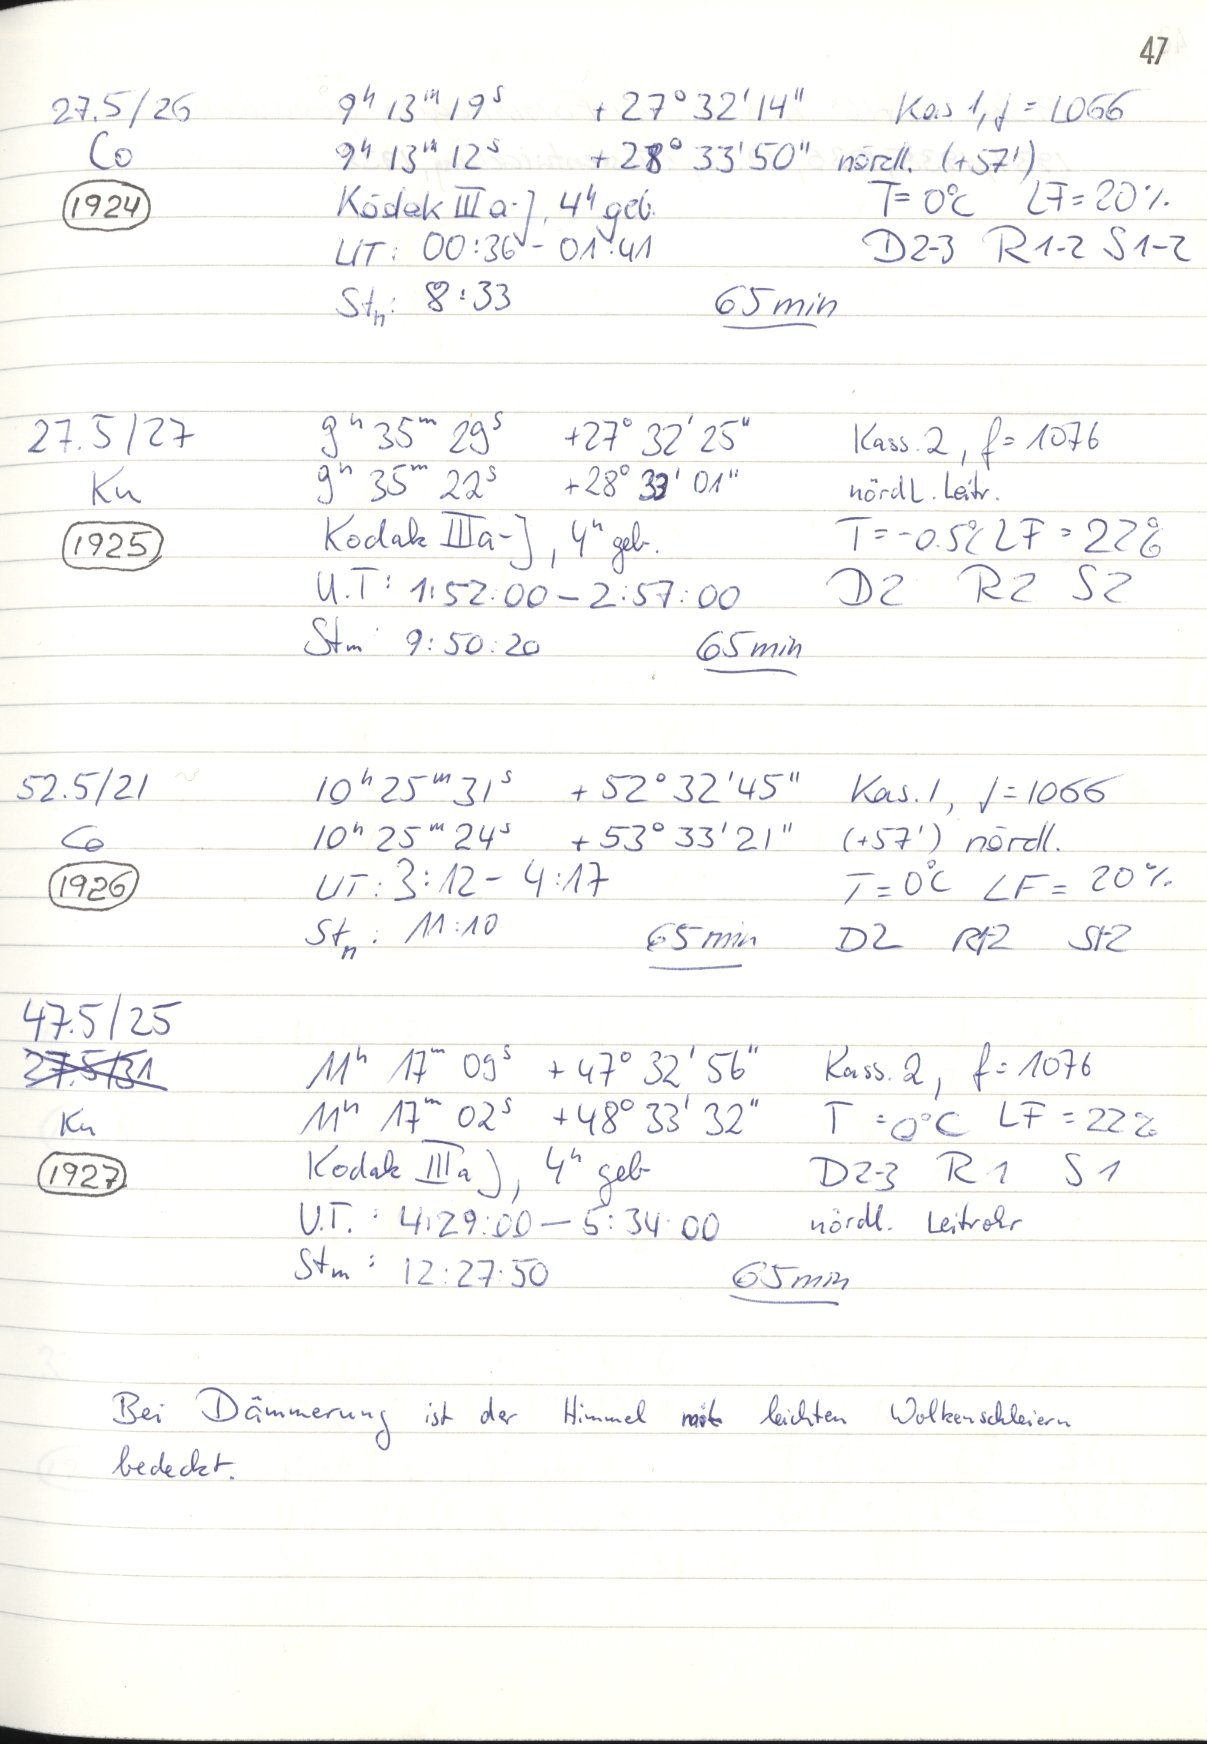 47
27.5/26 9ʰ 13ᵐ 19ˢ +27° 32' 14" Kas 1, f = 1066
Co 9ʰ 13ᵐ 12ˢ +28° 33' 50" nördl. (+57')
1924 Kodak IIIa-J, 4ʰ geb. T= 0°C LF = 20%
UT: 00:36 - 01:41 D2-3 R1-2 S1-2
Stn: 8:33 65 min
27.5/27 9ʰ 35ᵐ 29ˢ +27° 32' 25" Kass. 2, f = 1076
Kn 9ʰ 35ᵐ 22ˢ +28° 33' 01" nördl. Leitr.
1925 Kodak IIIa-J, 4ʰ geb. T = -0.5°C LF = 22%
U.T: 1:52:00 – 2:57:00 D2 R2 S2
Stm: 9:50:20 65 min
52.5/21 10ʰ 25ᵐ 31ˢ +52° 32' 45" Kas. 1, f = 1066
Co 10ʰ 25ᵐ 24ˢ +53° 33' 21" (+57') nördl.
1926 UT: 3:12 - 4:17 T = 0°C LF = 20%
Stn: 11:10 65 min D2 R1-2 S1-2
47.5/25
27.5/31 11ʰ 17ᵐ 09ˢ +47° 32' 56" Kass. 2, f = 1076
Kn 11ʰ 17ᵐ 02ˢ +48° 33' 32" T = 0°C LF = 22%
1927 Kodak IIIa J, 4ʰ geb D2-3 R1 S1
U.T.: 4:29:00 – 5:34:00 nördl. Leitrohr
Stm: 12:27:50 65 min
Bei Dämmerung ist der Himmel mit leichten Wolkenschleiern
bedeckt.